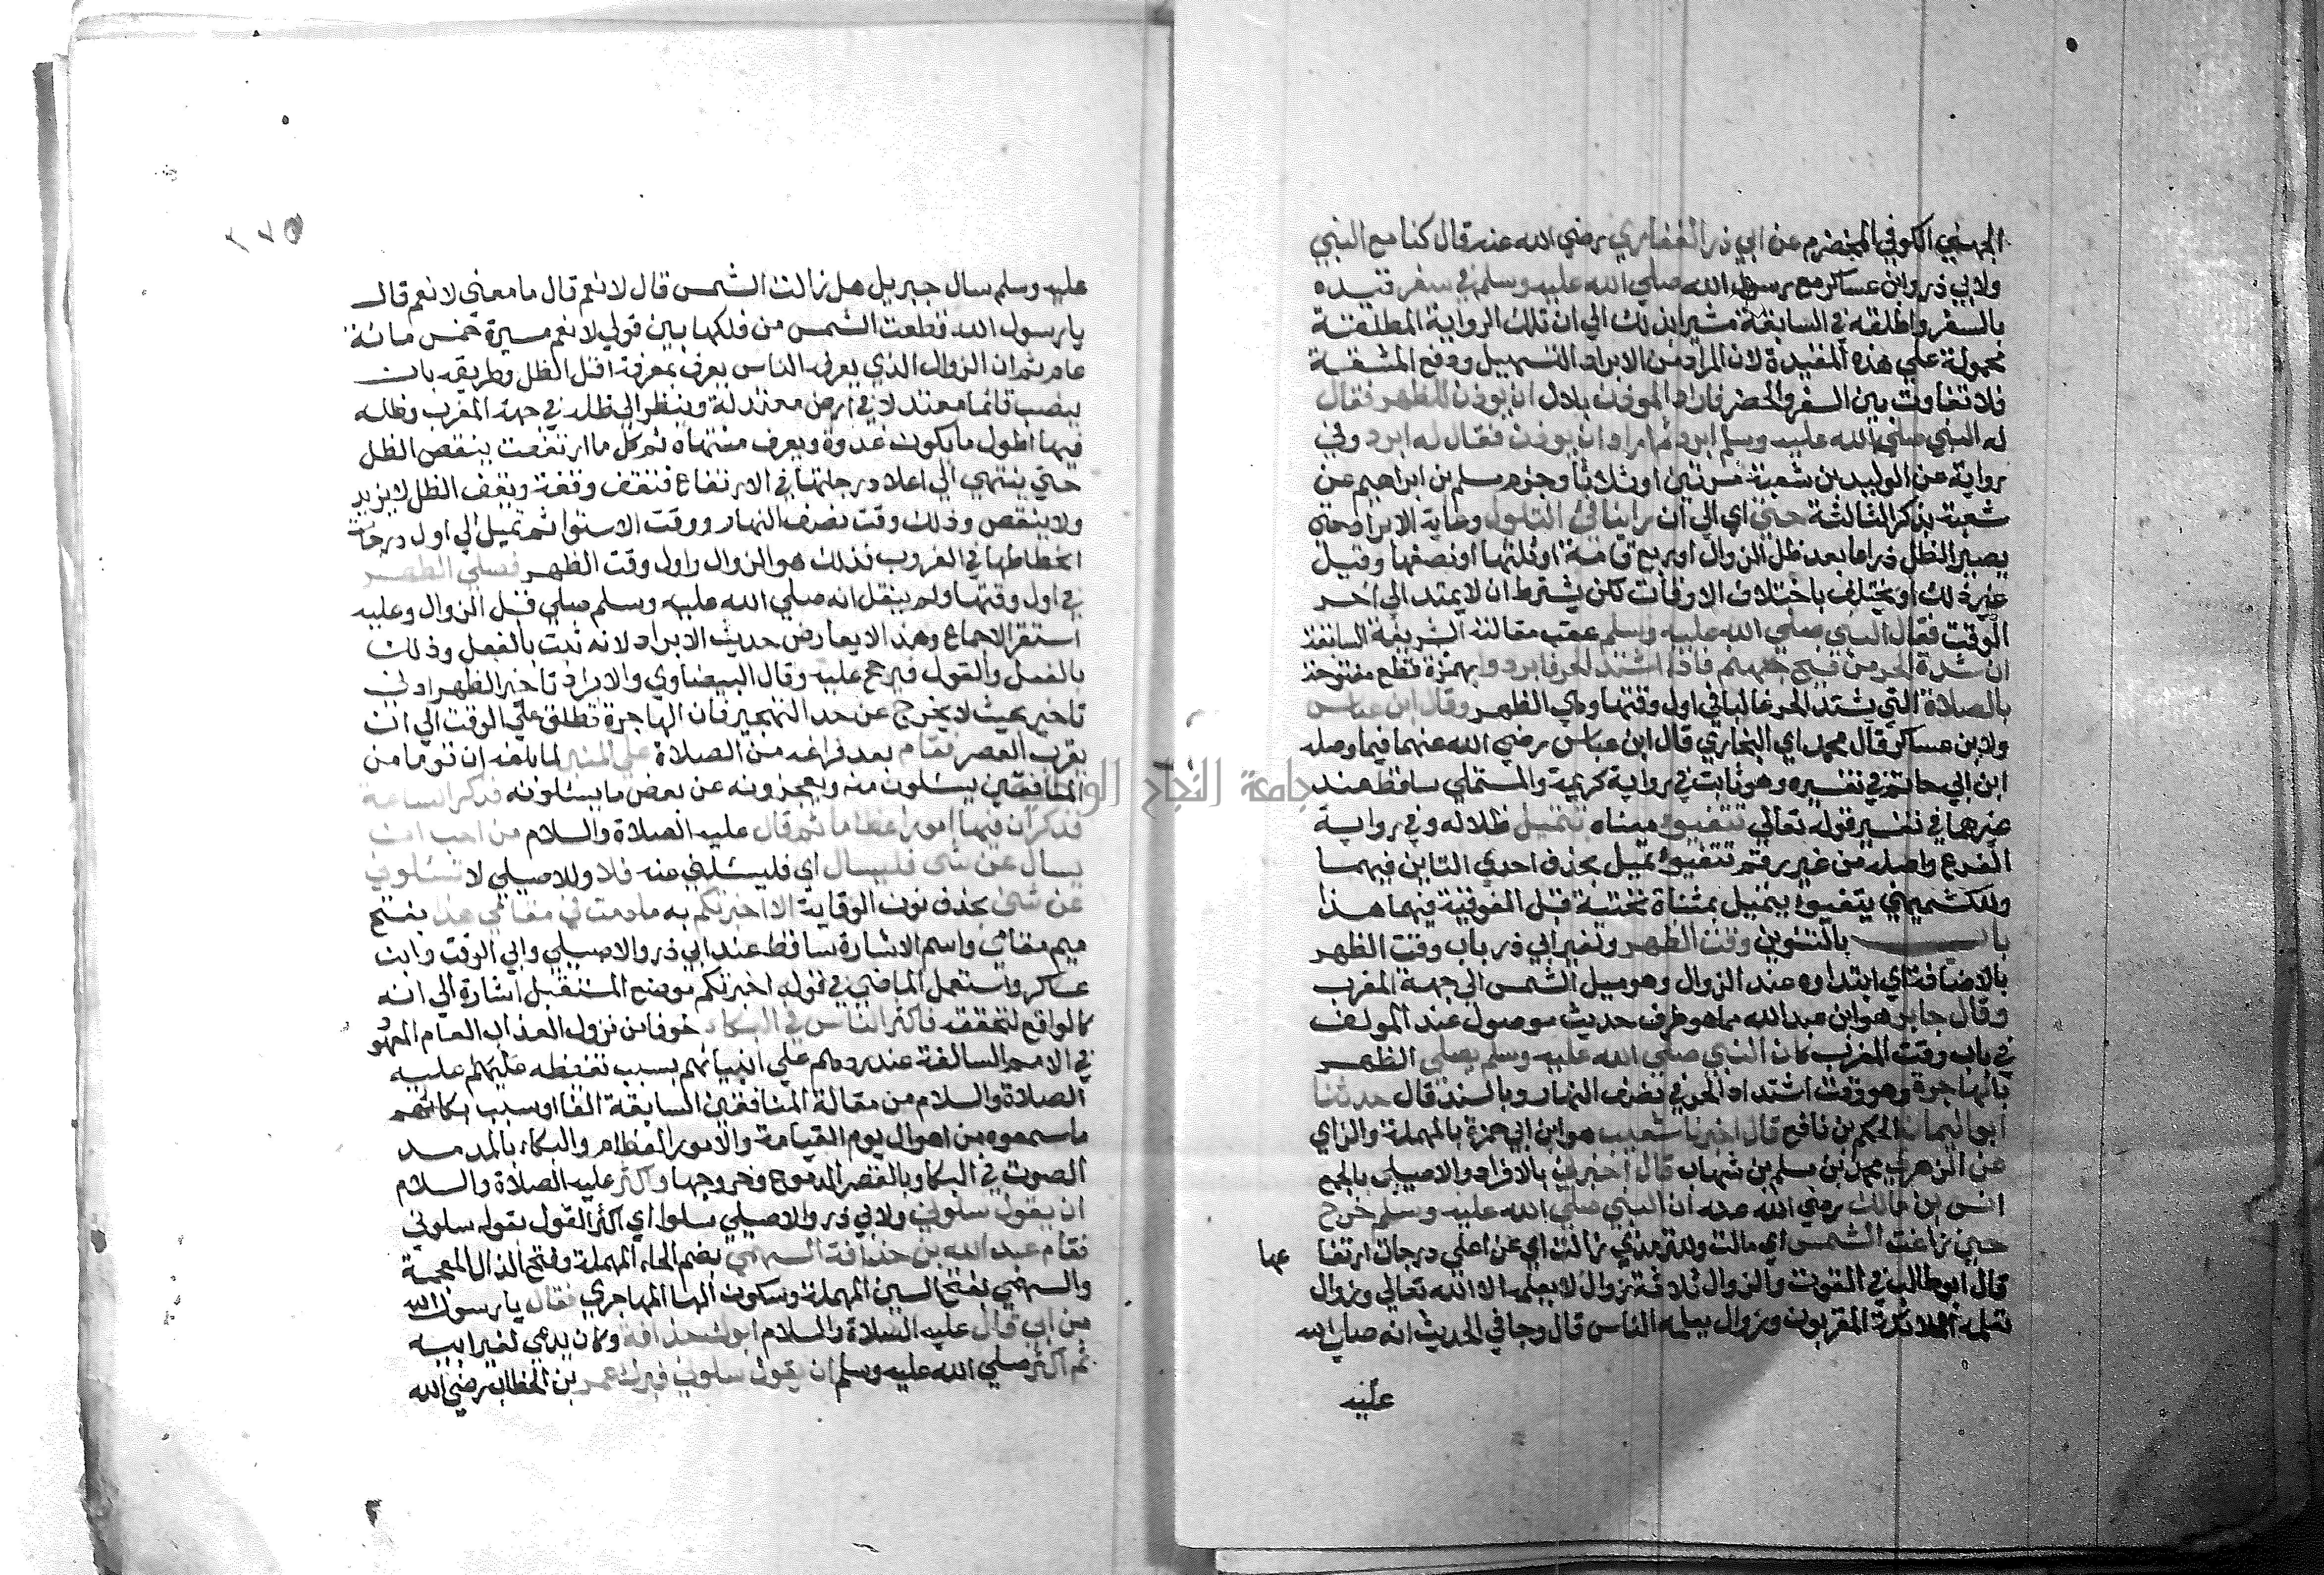 الجهني الكوفي المخضرم عن ابي ذر الغفاري رضي الله عنه قال كنا مع النبي
ولابي ذر وابن عساكر مع رسول الله صلي الله عليه وسلم في سفر قيده
بالسفر واطلقه في السابقة مشيرا بذلك الي ان تلك الرواية المطلقة
محمولة علي هذه المقيدة لان المراد من الابراد التسهيل ودفع المشقة
فلا تفاوت بين السفر والحضر فاراد المؤذن بلال ان يؤذن للظهر فقال
له النبي صلي الله عليه وسلم ابرد ثم اراد ان يوذن فقال له ابرد وفي
رواية عن الوليد بن شعبة مرتين او ثلاثا وجزم مسلم بن ابراهيم عن
شعبة بذكر الثالثة حتي اي الي ان راينا فئ التلول وغاية الابراد حتي
يصير الظل ذراعا بعد ظل الزوال او ربع قامة او ثلثها او نصفها وقيل
غير ذلك او يختلف باختلاف الاوقات لكن يشترط ان لا يمتد الي اخر
الوقت فقال النبي صلي الله عليه وسلم عقب مقالته الشريفة السابقة
ان شدة الحر من فيح جهنم فاذا اشتد الحر فابردوا بهمزة قطع مفتوحة
بالصلاة التي يشتد الحر غالبا في اول وقتها وهي الظهر وقال ابن عباس
ولابن عساكر قال محمد اي البخاري قال ابن عباس رضي الله عنهما فيما وصله
ابن ابي حاتم في تفسيره وهو ثابت في رواية كريمة والمستملي ساقط عند
غيرهما في تفسير قوله تعالي تتفيؤ معناه تتميل ظلاله وفي رواية
الفرع واصله من غير رقم تتفيؤ تميل بحذف احدي التاين فيهما
وللكشميهني يتفيوا يتميل بمثناة تحتية قبل الفوقية فيهما هذا
باب بالتنوين وقت الظهر ولغير ابي ذر باب وقت الظهر
بالاضافة اي ابتداوه عند الزوال وهو ميل الشمس الي جهة المغرب
وقال جابر هو ابن عبد الله مما هو طرف حديث موصول عند المولف
في باب وقت المغرب كان النبي صلي الله عليه وسلم يصلي الظهر
بالهاجرة وهو وقت اشتداد الحر في نصف النهار وبالسند قال حدثنا
ابو اليمان الحكم بن نافع قال اخبرنا شعيب هو ابن ابي حمزة بالمهملة والزاي
عن الزهري محمد بن مسلم بن شهاب قال اخبرني بالافراد وللاصيلي بالجمع
انس بن مالك رضي الله عنه ان النبي صلي الله عليه وسلم خرج
حين زاغت الشمس اي مالت وللترمذي زالت اي عن اعلي درجات ارتفا عها
قال ابو طالب في القوت والزوال ثلاثة زوال لا يعلمه الا الله تعالي وزوال
تعلمه الملائكة المقربون وزوال يعلمه الناس قال وجا في الحديث انه صلي الله
عليه
٢٧٥
عليه وسلم سال جبريل هل زالت الشمس قال لا نعم قال ما معني لا نعم قال
يا رسول الله قطعت الشمس من فلكها بين قولي لا نعم مسيرة خمس مائة
عام ثم ان الزوال الذي يعرفه الناس يعرف بمعرفة اقل الظل وطريقه بان
ينصب قائما معتدلا في ارض معتدلة وينظر الي ظله في جهة المغرب وظله
فيها اطول ما يكون غدوة ويعرف منتهاه ثم كل ما ارتفعت ينقص الظل
حتي ينتهي الي اعلا درجاتها في الارتفاع فتقف وقفة ويقف الظل لا يزيد
ولا ينقص وذلك وقت نصف النهار ووقت الاستوا ثم تميل الي اول درجات
انحطاطها في الغروب فذلك هو الزوال واول وقت الظهر فصلي الظهر
في اول وقتها ولم ينقل انه صلي الله عليه وسلم صلي قبل الزوال وعليه
استقر الاجماع وهذا لا يعارض حديث الابراد لانه ثبت بالفعل وذلك
بالفعل والقول فيرجح عليه وقال البيضاوي والابراد تاخير الظهر ادني
تاخير بحيث لا يخرج عن حد التهجير فان الهاجرة تطلق علي الوقت الي ان
يقرب العصر فقام بعد فراغه من الصلاة علي المنبر لما بلغه ان قوما من
المنافقين يسئلون منه ويعجزونه عن بعض ما يسئلونه فذكر الساعة
فذكر ان فيها امورا عظاما ثم قال عليه الصلاة والسلام من احب ان
يسال عن شي فليسال اي فليسئلني عنه فلا وللاصيلي لا تسئلوني
عن شي بحذف نون الوقاية الا اخبرتكم به ما دمت في مقامي هذا بفتح
ميم مقامي واسم الاشارة ساقط عند ابي ذر والاصيلي وابي الوقت وابن
عساكر واستعمل الماضي في قوله اخبرتكم موضع المستقبل اشارة الي انه
كالواقع لتحققه فاكثر الناس في البكاء خوفا من نزول العذاب العام المعهود
في الامم السالفة عند ردهم علي انبيائهم بسبب تغيظه عليهم عليه
الصلاة والسلام من مقالة المنافقين السابقة انفا او سبب بكائهم
ما سمعوه من اهوال يوم القيامة والامور العظام والبكاء بالمد مد
الصوت في البكا وبالقصر الدموع وخروجها واكثر عليه الصلاة والسلام
ان يقول سلوني ولابي ذر والاصيلي سلوا اي اكثر القول بقوله سلوني
فقام عبد الله بن حذافة السهمي بضم الحاء المهملة وفتح الذال المعجمة
والسهمي بفتح السين المهملة وسكون الها المهاجري فقال يا رسول الله
من ابي قال عليه الصلاة والسلام ابوك حذافة وكان يدعي لغير ابيه
ثم اكثر صلي الله عليه وسلم ان يقول سلوني فبرك عمر بن الخطاب رضي الله
جامعة النجاح الوطنية